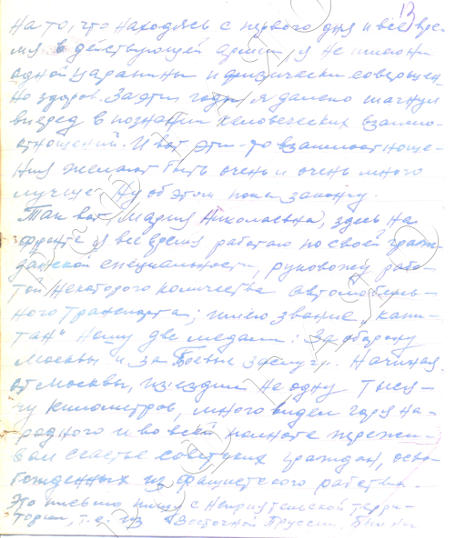 13
на то, что находясь с первого дня и всё вре-
мя в действующей армии, я не имею ни
одной царапины и физически совершен-
но здоров. За эти годы я далеко шагнул
вперед в познании человеческих взаимо-
отношений. И вот эти-то взаимоотноше-
ния желают быть очень и очень много
лучше. Ну об этом пока закончу.
Так вот, Мария Николаевна, здесь на
фронте я всё время работаю по своей граж-
данской специальности, руковожу рабо-
той некоторого количества автомобиль-
ного транспорта; имею звание „капи-
тан" ношу две медали: За оборону
Москвы и за Боевые заслуги. Начиная
от Москвы, изъездил не одну тыся-
чу километров, много видел горя на-
родного и во всей полноте пережи-
вал счастье советских граждан, осво-
божденных из фашистского рабства.
Это письмо пишу с неприятельской терри-
тории, т.е. из Восточной Пруссии.